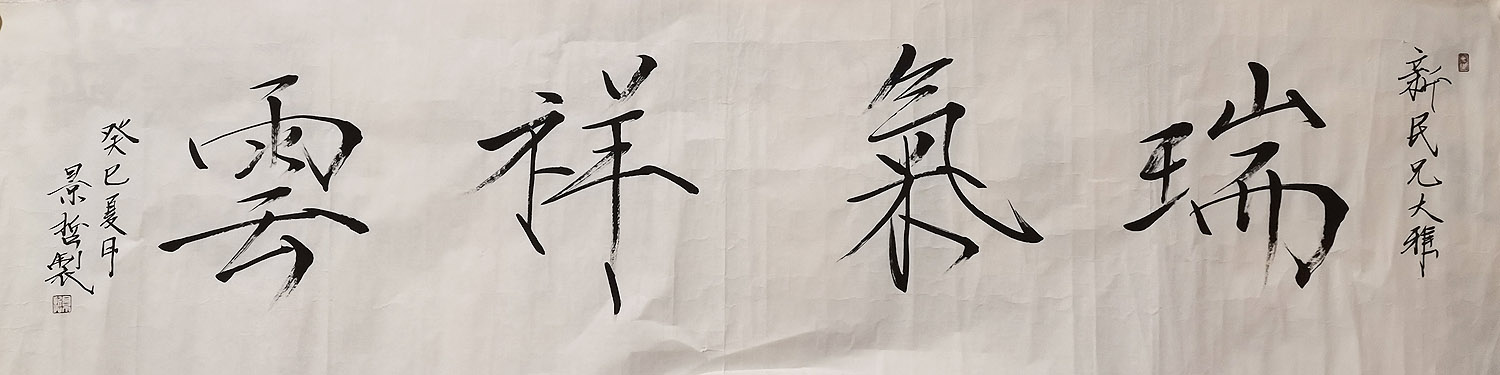 新民兄大雅
瑞氣祥雲
癸巳夏月
景哲製